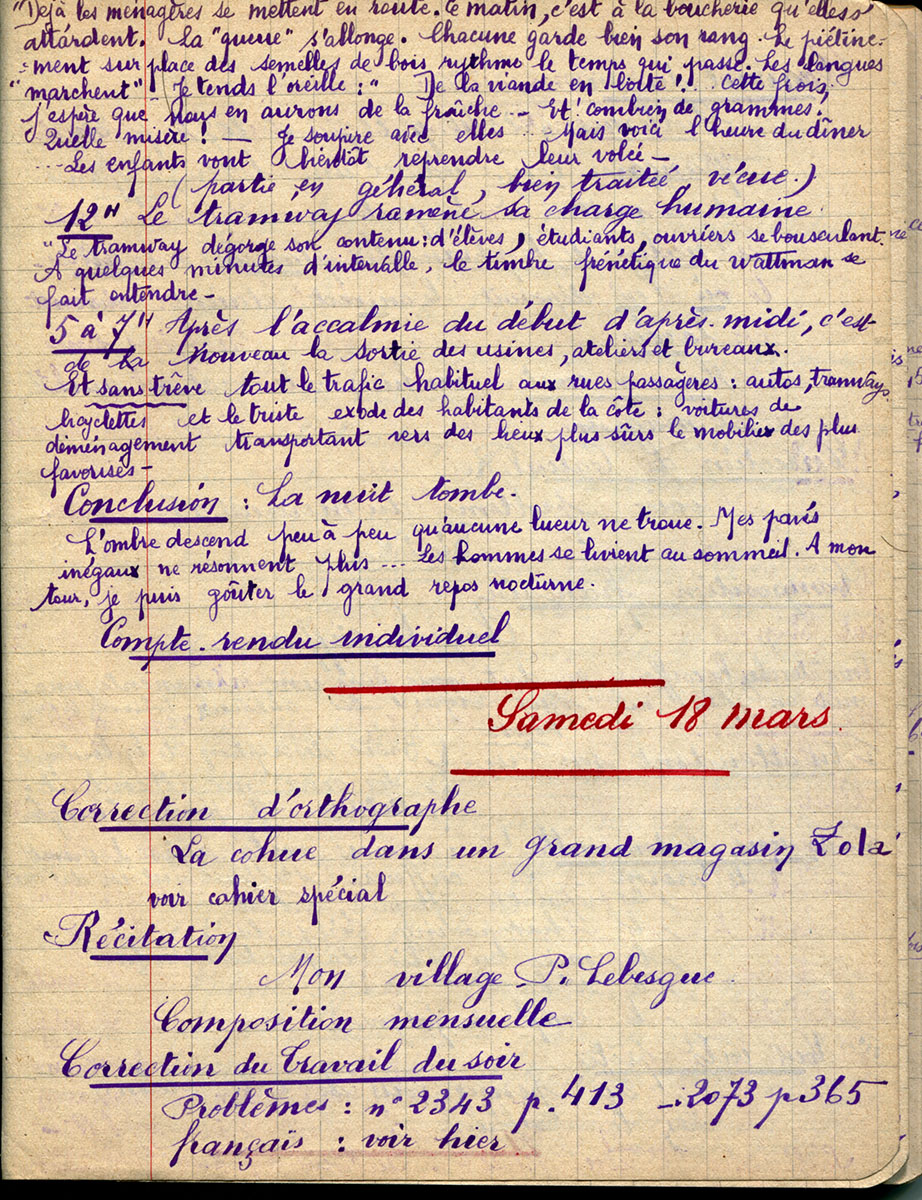 "Déjà les ménagères se mettent en route. Ce matin, c'est à la boucherie qu'elles s'
attardent. La "queue" s'allonge. Chacune garde bien son rang. Le piétine-
ment sur place des semelles de bois rythme le temps qui passe. Les langues
"marchent" Je tends l'oreille : " De la viande en boîte !.. cette fois,
j'espère que nous en aurons de la fraîche - Et ! combien de grammes,
Quelle misère ! - Je soupire avec elles ... Mais voici l'heure du dîner
... Les enfants vont bientôt reprendre leur volée -
(partie, en général, bien traitée, vécue.)
12H Le tramway ramène sa charge humaine.
"Le tramway dégorge son contenu : d'élèves, étudiants, ouvriers se bousculant.
A quelques minutes d'intervalle, le timbre frénétique du Wattman se
fait entendre -
5 à 7H Après l'accalmie du début d'après-midi, c'est
de nouveau la sortie des usines, ateliers et bureaux.
Et sans trêve tout le trafic habituel aux rues passagères : autos, tramways
bicyclettes et le triste exode des habitants de la côte : voitures de
déménagement transportant vers des lieux plus sûrs le mobilier des plus
favorisés -
Conclusion : La nuit tombe.
L'ombre descend peu à peu qu'aucune lueur ne troue. Mes pavés
inégaux ne résonnent plus ... Les hommes se livrent au sommeil. A mon
tour, je puis goûter le grand repos nocturne.
Compte-rendu individuel
Samedi 18 mars.
Correction d'orthographe
La cohue dans un grand magasin Zola
voir cahier spécial
Récitation
Mon village P. Lebesgue.
Composition mensuelle
Correction du Travail du soir
Problèmes : n° 2343 p. 413 - 2073 p 365
français : voir hier